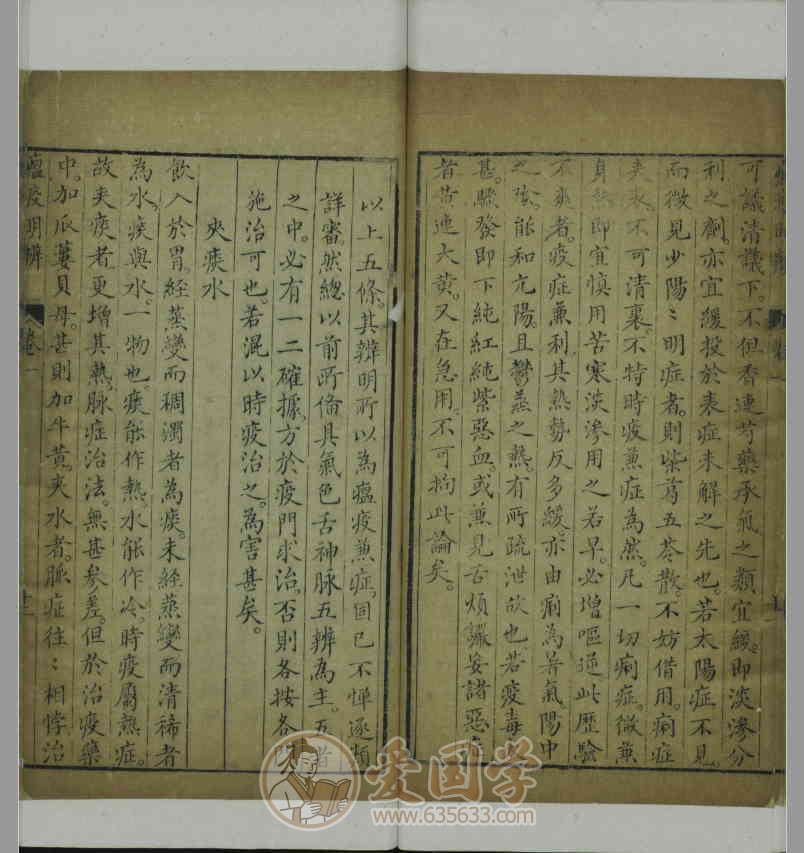 可議清議下。不但香連芍藥承氣之類宜緩。即淡滲分
利之劑。亦宜緩投於表症未解之先也。若太陽症不見。
而微見少陽〻明症者。則柴葛五苓散。不妨借用。痢症
夾表。不可清裏。不特時疫兼症為然。凡一切痢症。微兼
身熱。即宜慎用苦寒淡滲。用之若早。必增嘔逆。此歷驗
不爽者。疫症兼利。其熱勢反多緩。亦由痢為暑氣。陽中
之陰。能和亢陽。且鬱蒸之熱。有所疏泄故也。若疫毒
甚。驟發即下純紅純紫惡血。或兼見舌煩讝妄諸惡
者。黄連大黄。又在急用。不可拘此論矣。
卷一
以上五條。其辨明所以為瘟疫兼症。固已不憚逐類
詳審。然總以前所備具氣色舌神脉五辨為主。五者
之中。必有一二確據。方於疫門求治。否則各按各
施治可也。若混以時疫治之。為害甚矣。
夾痰水
飲入於胃。經蒸變而稠濁者為痰。未經蒸變而清稀者
為水。痰與水。一物也。痰能作熱。水能作冷。時疫屬熱症。
故夾痰者更增其熱。脉症治法。無甚參差。但於治疫藥
中。加瓜蔞貝母。甚則加牛黄。夾水者。脈症往〻相悖。治
瘟疫明辨
卷一
十二
爱国学
www.635633.com